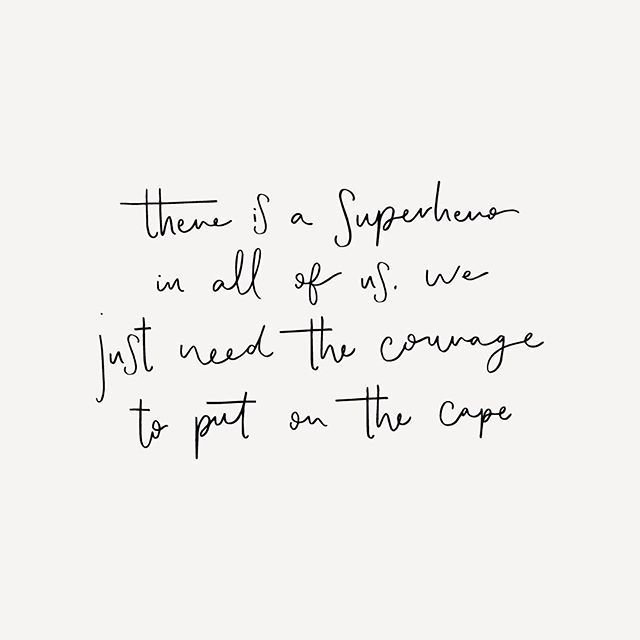 there is a superhero
in all of us. we
just need the courage
to put on the cape